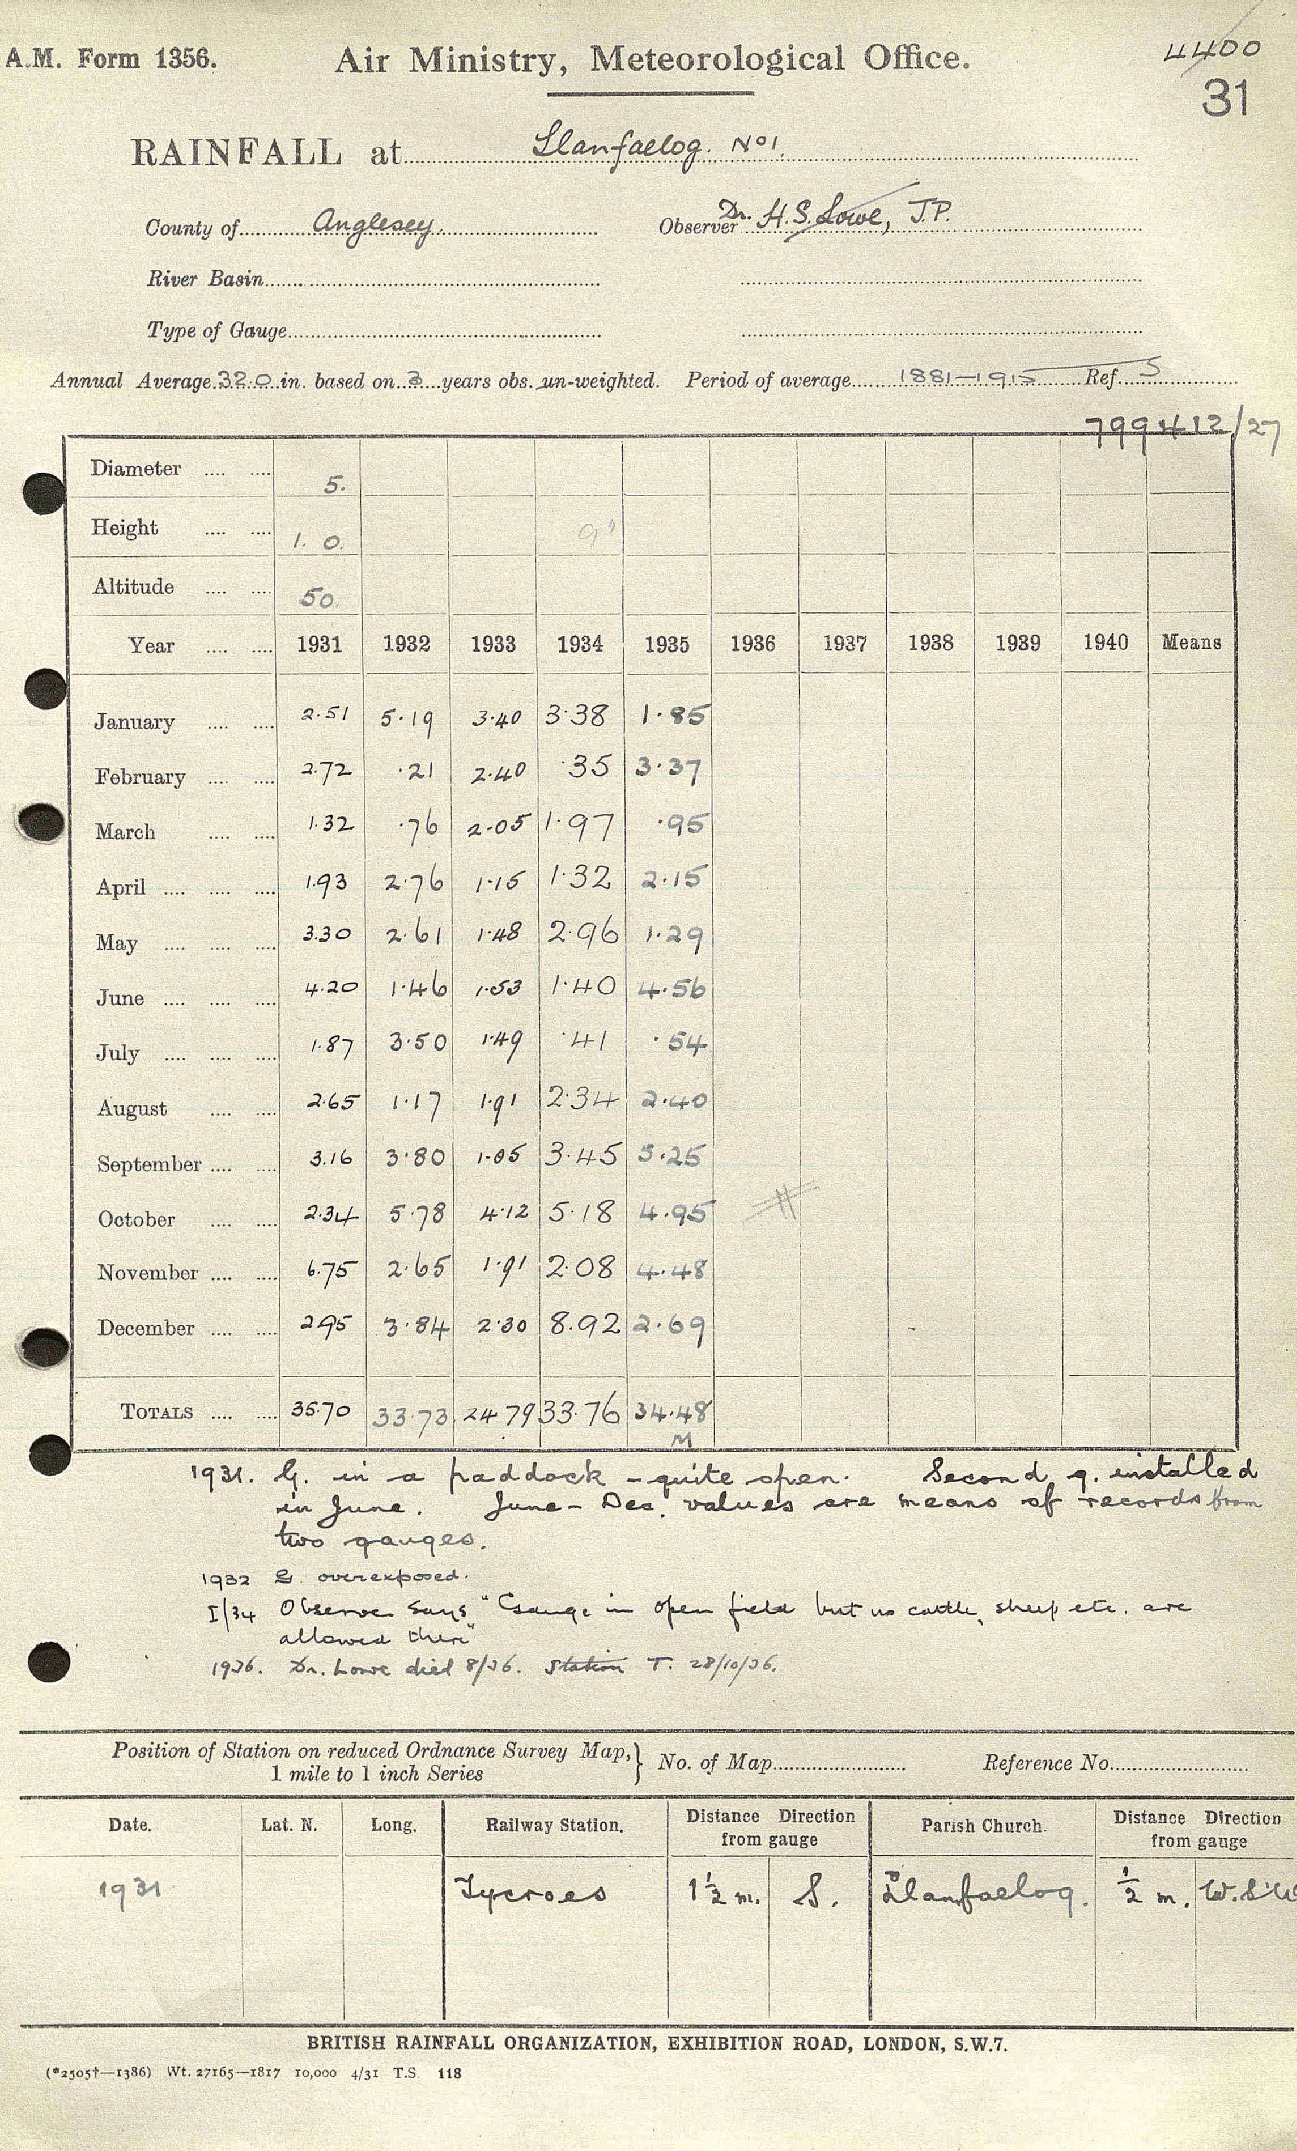 A.M. Form 1356. Air Ministry, Meteorological Office. 4400
31
RAINFALL at Llanfaelog. No 1.
County of Anglesey. Observer Dr. H.S. Lowe, J.P.
River Basin
Type of Gauge
Annual Average 32.0 in. based on 3 years obs. un-weighted. Period of average 1881-1915 Ref. S
799412/27
Diameter 5.
Height 1. 0. 9"
Altitude 50.
Year 1931 1932 1933 1934 1935 1936 1937 1938 1939 1940 Means
January 2.51 5.19 3.40 3.38 1.85
February 2.72 .21 2.40 .35 3.37
March 1.32 .76 2.05 1.97 .95
April 1.93 2.76 1.15 1.32 2.15
May 3.30 2.61 1.48 2.96 1.29
June 4.20 1.46 1.53 1.40 4.56
July 1.87 3.50 1.49 .41 .54
August 2.65 1.17 1.91 2.34 2.40
September 3.16 3.80 1.05 3.45 5.25
October 2.34 5.78 4.12 5.18 4.95
November 6.75 2.65 1.91 2.08 4.48
December 2.95 3.84 2.30 8.92 2.69
TOTALS 35.70 33.73 24.79 33.76 34.48
M
1931. G. in a paddock - quite open. Second g. installed
in June. June - Dec. values are means of records from
two gauges.
1932 G. overexposed.
I/34 Observer says "Gauge in open field but no cattle, sheep etc. are
allowed there"
1936. Dr. Lowe died 8/36. Station T. 28/10/36.
Position of Station on reduced Ordnance Survey Map, } No. of Map Reference No.
1 mile to 1 inch Series
Date. Lat. N. Long. Railway Station. Distance Direction from gauge Parish Church. Distance Direction from gauge
1931 Tycroes 1½ m. S. Llanfaelog. ½ m. W.S.W
BRITISH RAINFALL ORGANIZATION, EXHIBITION ROAD, LONDON, S.W.7.
(*2505†—1386) Wt. 27165—1817 10,000 4/31 T.S. 118